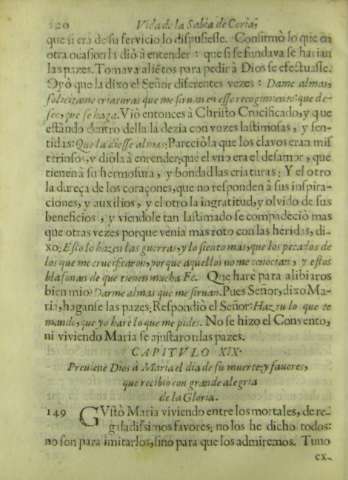 220 Vida de la Sabia de Coria,
que si era de su servicio lo dispusiesse. Consintiò lo que en
otra ocasion la diò à entender: que si se fundava se harian
las pazes. Tomava alietos para pedir à Dios se efectuasse.
Oyò que la dixo el Señor diferentes vezes: Dame almas,
solo criaturas que me sirvan en esse recogimiento que de-
seo, que se haga. Viò entonces à Christo Crucificado, y que
estàndo dentro della la dezia con vozes lastimosas, y sen-
tidas: Que la diesse almas. Pareciòla que los clavos eran mis-
teriosos, y diòla à entender, que el vno era el desamor, que
tienen à su hermosura, y bondad las criaturas: Y el otro
la dureça de los coraçones, que no responden à sus inspira-
ciones, y auxilios, y el otro la ingratitud, y olvido de sus
beneficios, y viendole tan lastimado se compadeciò mas
que otras vezes porque venia mas roto con las heridas, di-
xo: Esto lo hazen las guerras, y lo siento mas, que los pecados de
los que me crucificaron, porque aquellos no me conocian, y estos
blasonan de que tienen mucha Fe. Que harè para aliviaros
bien mio? Darme almas que me sirvan. Pues Señor, dixo Ma-
ria, haganse las pazes. Respondiò el Señor: Haz tu lo que te
mando, que yo harè lo que me pides. No se hizo el Convento,
ni viviendo Maria se ajustaron las pazes.
CAPITVLO XIX.
Previene Dios à Maria el dia de su muerte, y favores,
que recibio con grande alegria
de la Gloria.
149 GVstò Maria viviendo entre los mortales, de re-
galadissimos favores; no los he dicho todos:
no son para imitarlos, sino para que los admiremos. Tuvo
ex-